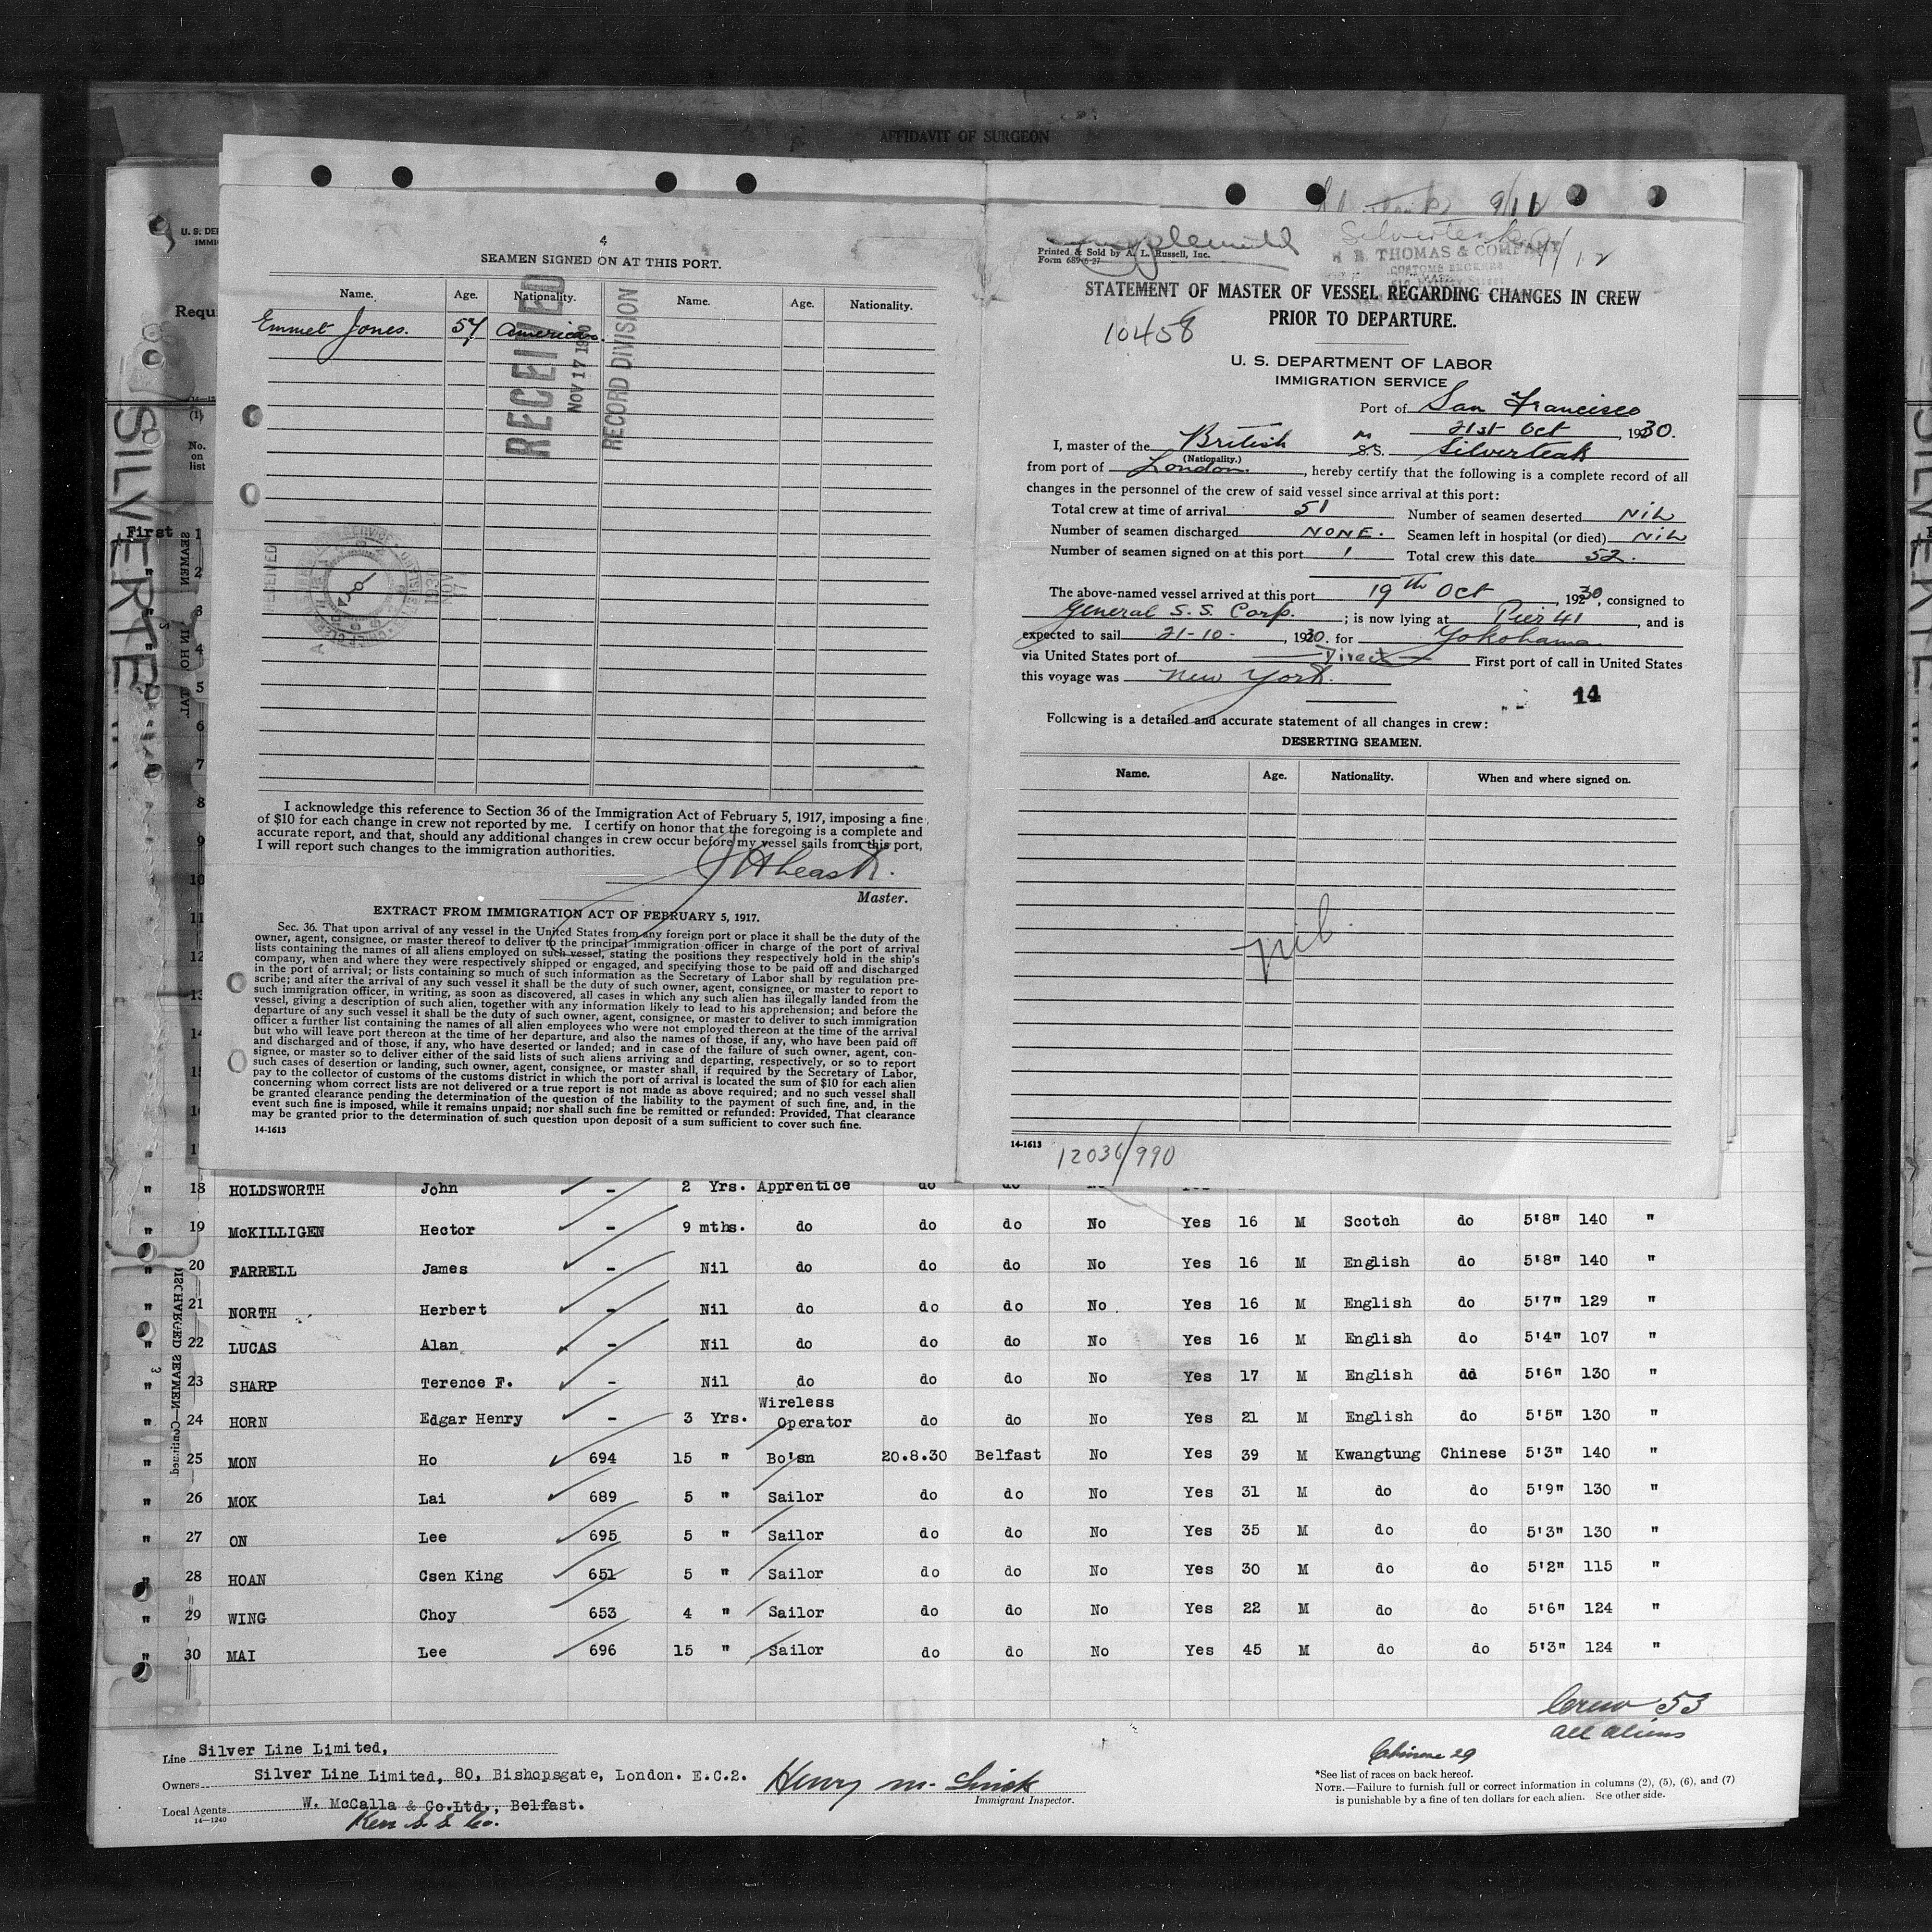 AFFIDAVIT OF SURGEON
4
SEAMEN SIGNED ON AT THIS PORT.
Name. Age. Nationality. Name. Age. Nationality.
Emmet Jones. 57 American.
RECEIVED
NOV 17 1930
RECORD DIVISION
I acknowledge this reference to Section 36 of the Immigration Act of February 5, 1917, imposing a fine
of $10 for each change in crew not reported by me. I certify on honor that the foregoing is a complete and
accurate report, and that, should any additional changes in crew occur before my vessel sails from this port,
I will report such changes to the immigration authorities.
Master.
EXTRACT FROM IMMIGRATION ACT OF FEBRUARY 5, 1917.
Sec. 36. That upon arrival of any vessel in the United States from any foreign port or place it shall be the duty of the
owner, agent, consignee, or master thereof to deliver to the principal immigration officer in charge of the port of arrival
lists containing the names of all aliens employed on such vessel, stating the positions they respectively hold in the ship's
company, when and where they were respectively shipped or engaged, and specifying those to be paid off and discharged
in the port of arrival; or lists containing so much of such information as the Secretary of Labor shall by regulation pre-
scribe; and after the arrival of any such vessel it shall be the duty of such owner, agent, consignee, or master to report to
such immigration officer, in writing, as soon as discovered, all cases in which any such alien has illegally landed from the
vessel, giving a description of such alien, together with any information likely to lead to his apprehension; and before the
departure of any such vessel it shall be the duty of such owner, agent, consignee, or master to deliver to such immigration
officer a further list containing the names of all alien employees who were not employed thereon at the time of the arrival
but who will leave port thereon at the time of her departure, and also the names of those, if any, who have been paid off
and discharged and of those, if any, who have deserted or landed; and in case of the failure of such owner, agent, con-
signee, or master so to deliver either of the said lists of such aliens arriving and departing, respectively, or so to report
such cases of desertion or landing, such owner, agent, consignee, or master shall, if required by the Secretary of Labor,
pay to the collector of customs of the customs district in which the port of arrival is located the sum of $10 for each alien
concerning whom correct lists are not delivered or a true report is not made as above required; and no such vessel shall
be granted clearance pending the determination of the question of the liability to the payment of such fine, and, in the
event such fine is imposed, while it remains unpaid; nor shall such fine be remitted or refunded: Provided, That clearance
may be granted prior to the determination of such question upon deposit of a sum sufficient to cover such fine.
14-1613
Silverteak 9/12
Printed & Sold by A. L. Russell, Inc.
Form 689-6-27
THOMAS & COMPANY
CUSTOMS BROKERS
STATEMENT OF MASTER OF VESSEL REGARDING CHANGES IN CREW
PRIOR TO DEPARTURE.
10458
U. S. DEPARTMENT OF LABOR
IMMIGRATION SERVICE
Port of San Francisco
21st Oct , 1930.
I, master of the British M S.S. Silverteak
(Nationality.)
from port of London. , hereby certify that the following is a complete record of all
changes in the personnel of the crew of said vessel since arrival at this port:
Total crew at time of arrival 51 Number of seamen deserted NIL
Number of seamen discharged NONE. Seamen left in hospital (or died) NIL
Number of seamen signed on at this port 1 Total crew this date 52.
The above-named vessel arrived at this port 19th Oct , 1930, consigned to
General S. S. Corp. ; is now lying at Pier 41 , and is
expected to sail 21-10- , 1930. for Yokohama
via United States port of Direct First port of call in United States
this voyage was New York.
14
Following is a detailed and accurate statement of all changes in crew:
DESERTING SEAMEN.
Name. Age. Nationality. When and where signed on.
nil
14-1613
12036/990
SILVERTE
Requ
(1)
No. on list
First 1
2
3
4
5
6
7
8
9
10
11
12
13
14
18 HOLDSWORTH John - 2 Yrs. Apprentice do do No Yes
" 19 McKILLIGEN Hector - 9 mths. do do do No Yes 16 M Scotch do 5'8" 140 "
" 20 FARRELL James - Nil do do do No Yes 16 M English do 5'8" 140 "
" 21 NORTH Herbert - Nil do do do No Yes 16 M English do 5'7" 129 "
" 22 LUCAS Alan - Nil do do do No Yes 16 M English do 5'4" 107 "
" 23 SHARP Terence F. - Nil do do do No Yes 17 M English do 5'6" 130 "
" 24 HORN Edgar Henry - 3 Yrs. Wireless Operator do do No Yes 21 M English do 5'5" 130 "
" 25 MON Ho 694 15 " Bo'sn 20.8.30 Belfast No Yes 39 M Kwangtung Chinese 5'3" 140 "
" 26 MOK Lai 689 5 " Sailor do do No Yes 31 M do do 5'9" 130 "
" 27 ON Lee 695 5 " Sailor do do No Yes 35 M do do 5'3" 130 "
" 28 HOAN Csen King 651 5 " Sailor do do No Yes 30 M do do 5'2" 115 "
" 29 WING Choy 653 4 " Sailor do do No Yes 22 M do do 5'6" 124 "
" 30 MAI Lee 696 15 " Sailor do do No Yes 45 M do do 5'3" 124 "
Crew 53
All aliens
Chinese 29
Line Silver Line Limited,
Owners Silver Line Limited, 80, Bishopsgate, London. E.C.2.
Local Agents W. McCalla & Co.Ltd., Belfast.
Kerr S. S. Co.
14-1240
Henry M.
Immigrant Inspector.
*See list of races on back hereof.
NOTE.—Failure to furnish full or correct information in columns (2), (5), (6), and (7)
is punishable by a fine of ten dollars for each alien. See other side.